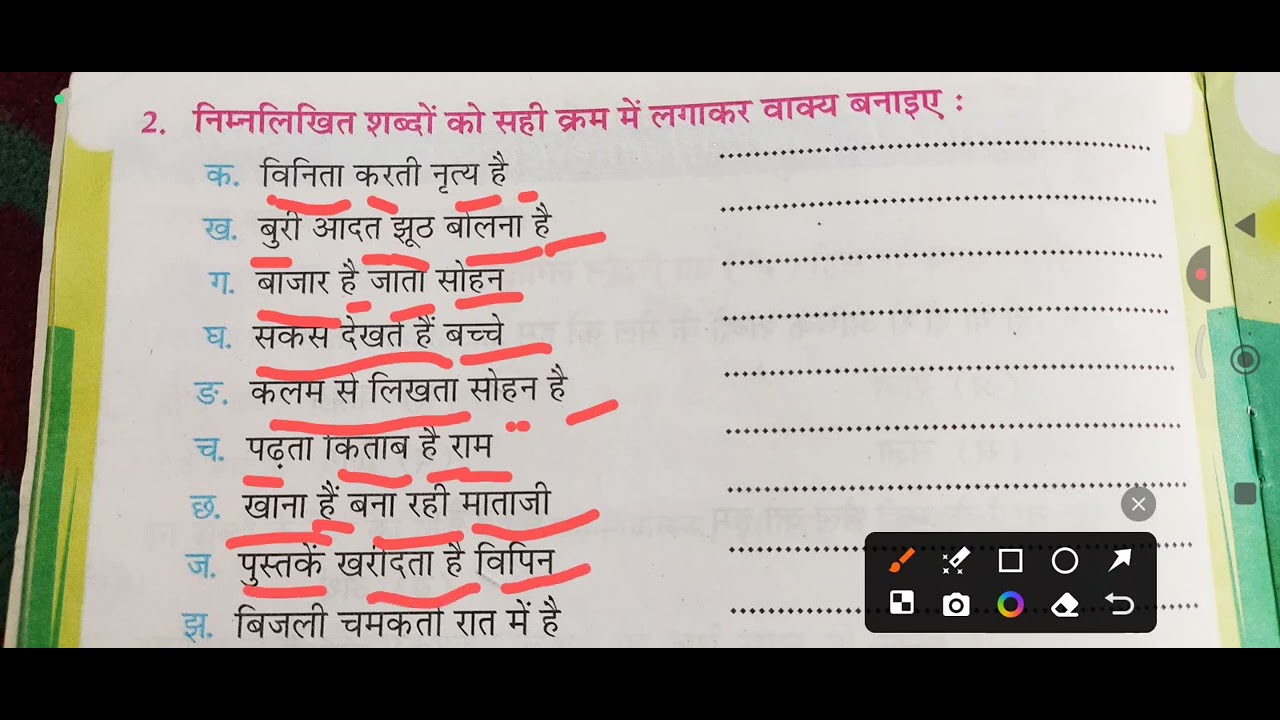 2. निम्नलिखित शब्दों को सही क्रम में लगाकर वाक्य बनाइए :
क. विनिता करती नृत्य है
ख. बुरी आदत झूठ बोलना है
ग. बाजार है जाता सोहन
घ. सर्कस देखते हैं बच्चे
ङ. कलम से लिखता सोहन है
च. पढ़ता किताब है राम
छ. खाना हैं बना रही माताजी
ज. पुस्तकें खरीदता है विपिन
झ. बिजली चमकती रात में है